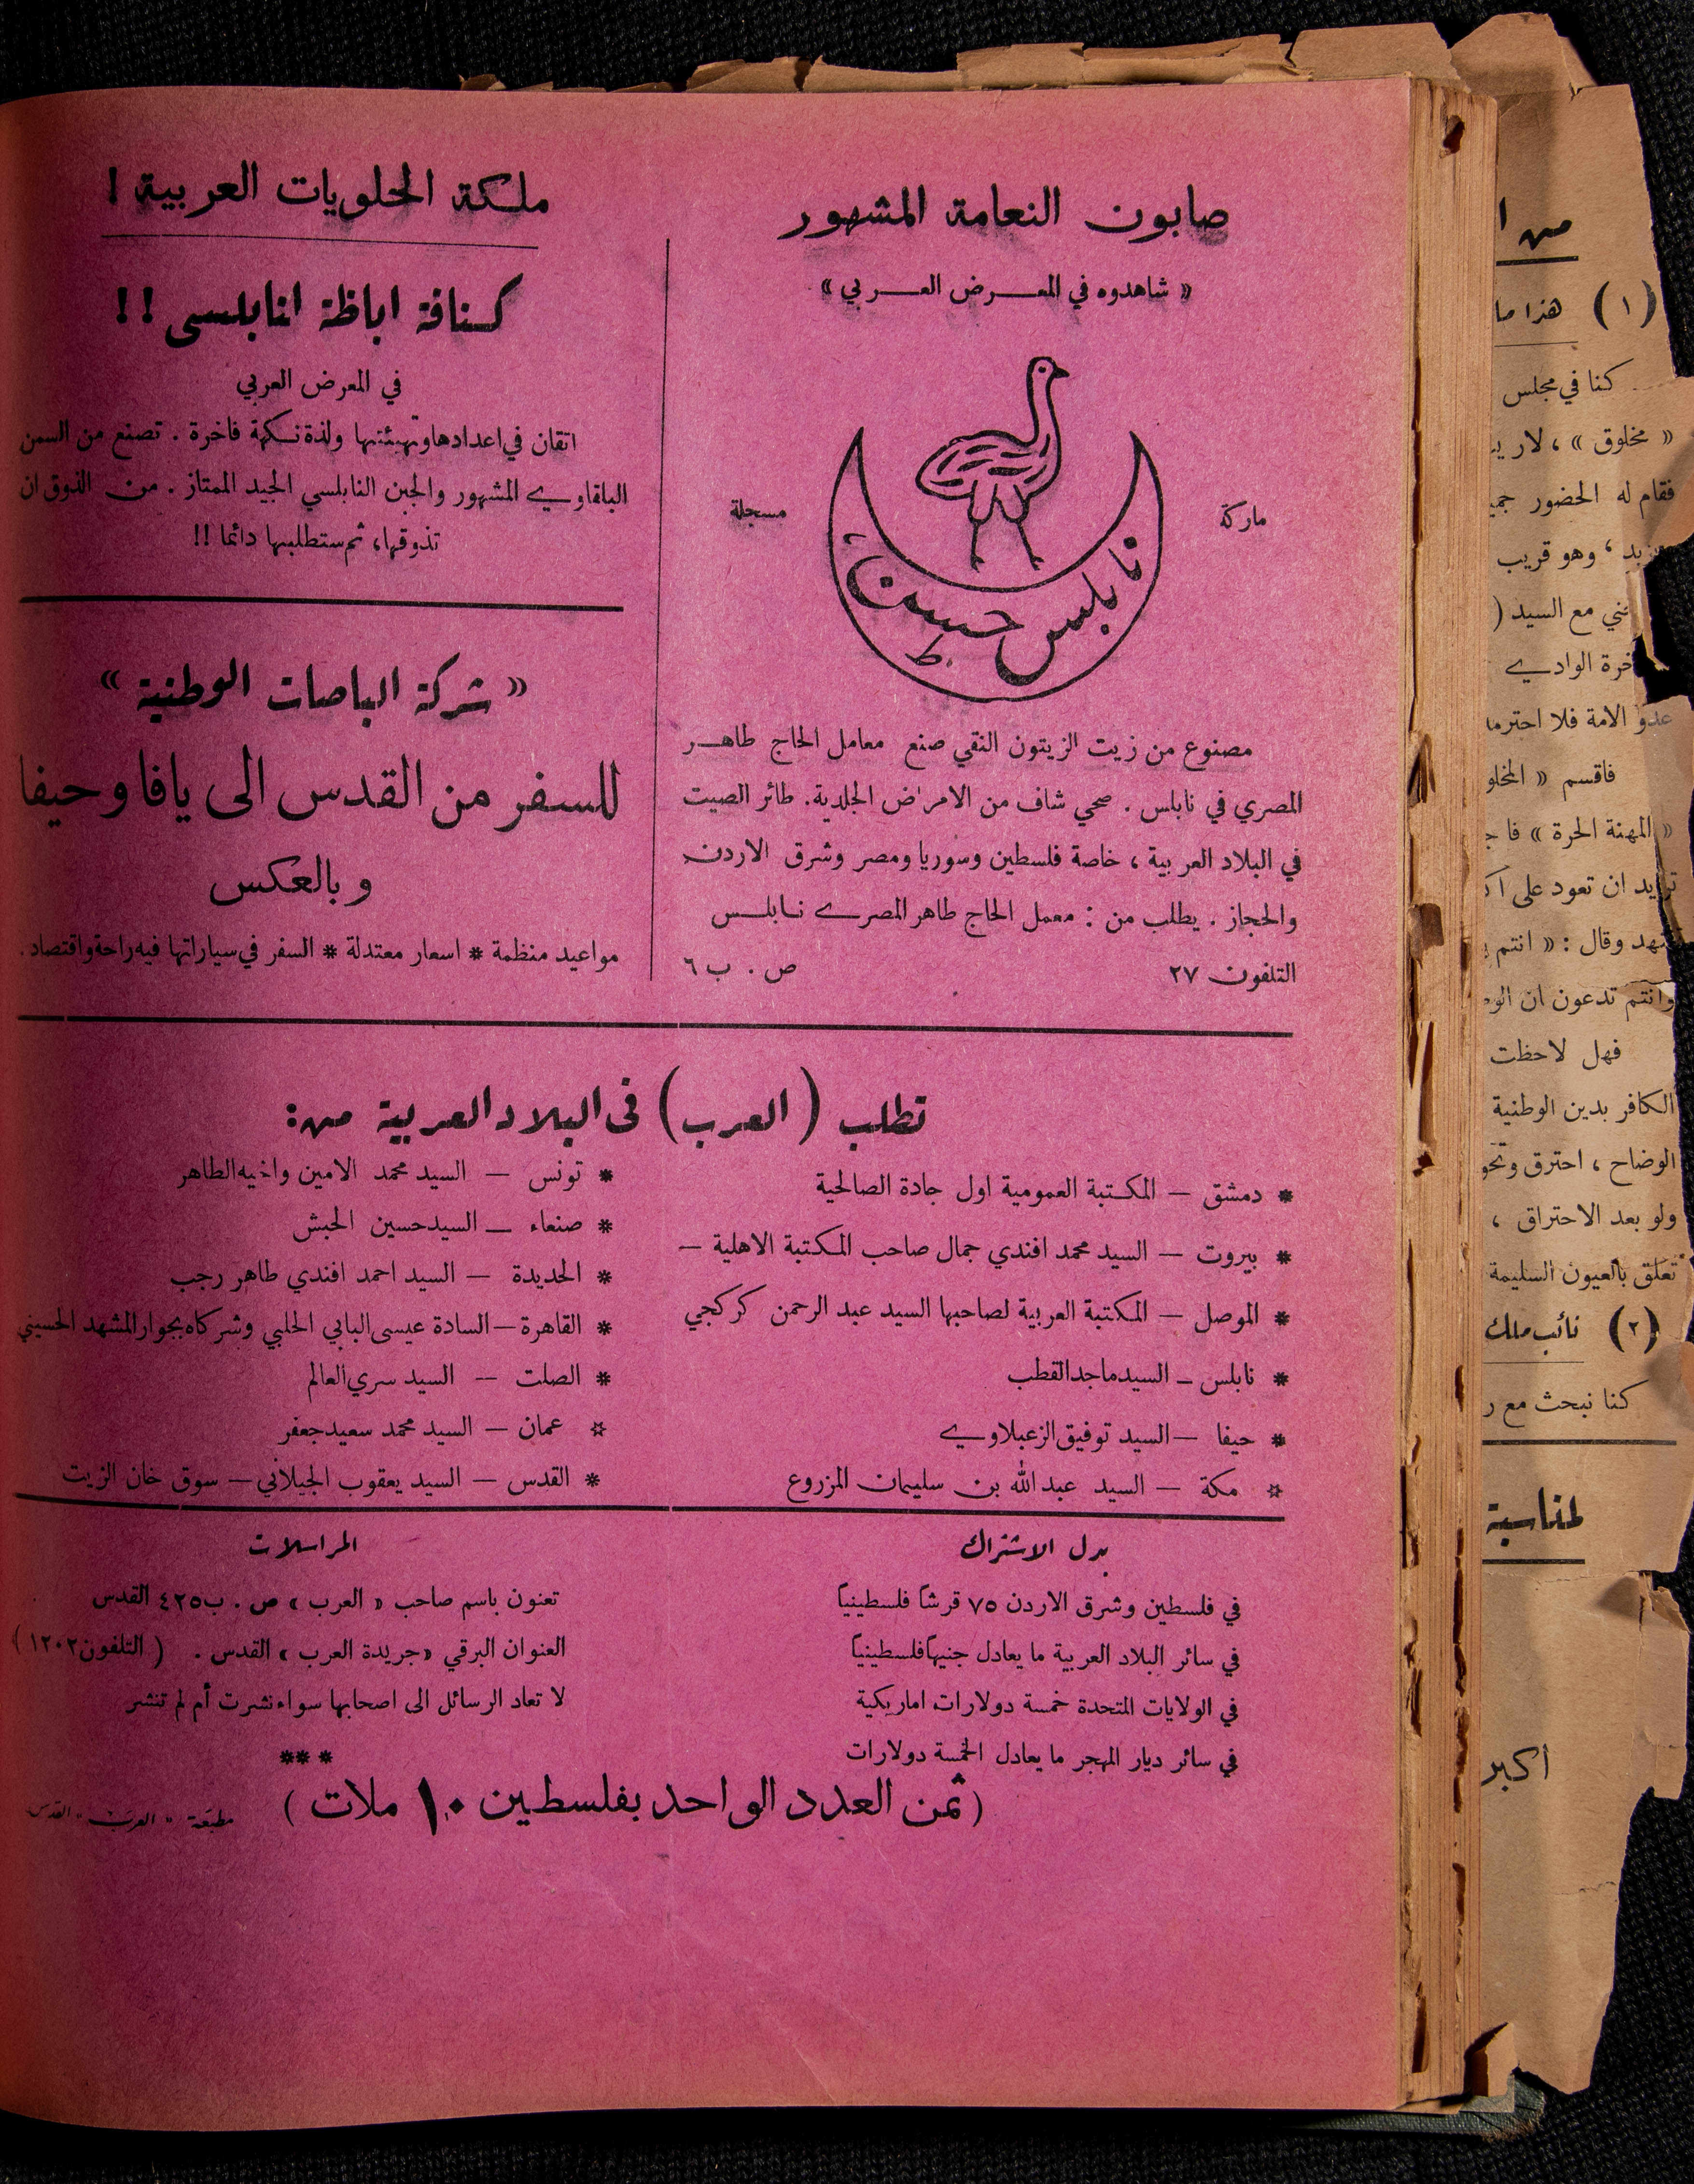 صابون النعامة المشهور
« شاهدوه في المعـــرض العـــربي »
ماركة
مسجلة
نابلس حسن ط
مصنوع من زيت الزيتون النقي صنع معامل الحاج طاهــر
المصري في نابلس . صحي شاف من الامراض الجلدية . طائر الصيت
في البلاد العربية ، خاصة فلسطين وسوريا ومصر وشرق الاردن
والحجاز . يطلب من : معمل الحاج طاهر المصري نــابلــس
التلفون ٢٧
ص . ب ٦
ملكة الحلويات العربية !
كنافة اباظة انابلسى !!
في المعرض العربي
اتقان في اعدادها وتهيئتها ولذة نكهة فاخرة . تصنع من السمن
البلقاوي المشهور والجبن النابلسي الجيد الممتاز . من الذوق ان
تذوقها ، ثم ستطلبها دائما !!
« شركة الباصات الوطنية »
للسفر من القدس الى يافا وحيفا
وبالعكس
مواعيد منظمة * اسعار معتدلة * السفر في سياراتها فيه راحة واقتصاد .
تطلب ( العرب ) فى البلاد العربية من :
* دمشق — المكتبة العمومية اول جادة الصالحية
* بيروت — السيد محمد افندي جمال صاحب المكتبة الاهلية —
* الموصل — المكتبة العربية لصاحبها السيد عبد الرحمن كركجي
* نابلس — السيد ماجد القطب
* حيفا — السيد توفيق الزعبلاوي
* مكة — السيد عبد الله بن سليمان المزروع
* تونس — السيد محمد الامين واخيه الطاهر
* صنعاء — السيد حسين الحبش
* الحديدة — السيد احمد افندي طاهر رجب
* القاهرة — السادة عيسى البابي الحلبي وشركاه بجوار المشهد الحسيني
* الصلت — السيد سري العالم
* عمان — السيد محمد سعيد جعفر
* القدس — السيد يعقوب الجيلاني — سوق خان الزيت
بدل الاشتراك
في فلسطين وشرق الاردن ٧٥ قرشاً فلسطينياً
في سائر البلاد العربية ما يعادل جنيهاً فلسطينياً
في الولايات المتحدة خمسة دولارات اماريكية
في سائر ديار المهجر ما يعادل الخمسة دولارات
المراسلات
تعنون باسم صاحب « العرب » ص . ب ٤٢٥ القدس
العنوان البرقي « جريدة العرب » القدس . ( التلفون ١٢٠٢ )
لا تعاد الرسائل الى اصحابها سواء نشرت أم لم تنشر
***
( ثمن العدد الواحد بفلسطين ١٠ ملات )
مطبعة « العرب » القدس
من ا
( ١ ) هذا ما
كنا في مجلس
« مخلوق » ، لا ري
فقام له الحضور جمي
، وهو قريب
مع السيد (
الوادي
عدو الامة فلا احترمه
فاقسم « المخلو
« المهنة الحرة » فا
تريد ان تعود على
وقال : « انتم
وانتم تدعون ان الو
فهل لاحظت
الكافر بدين الوطنية
الوضاح ، احترق وتحو
ولو بعد الاحتراق ،
تعلق بالعيون السليمة
( ٢ ) نائب ملك
كنا نبحث مع ر
لمناسبة
أكبر